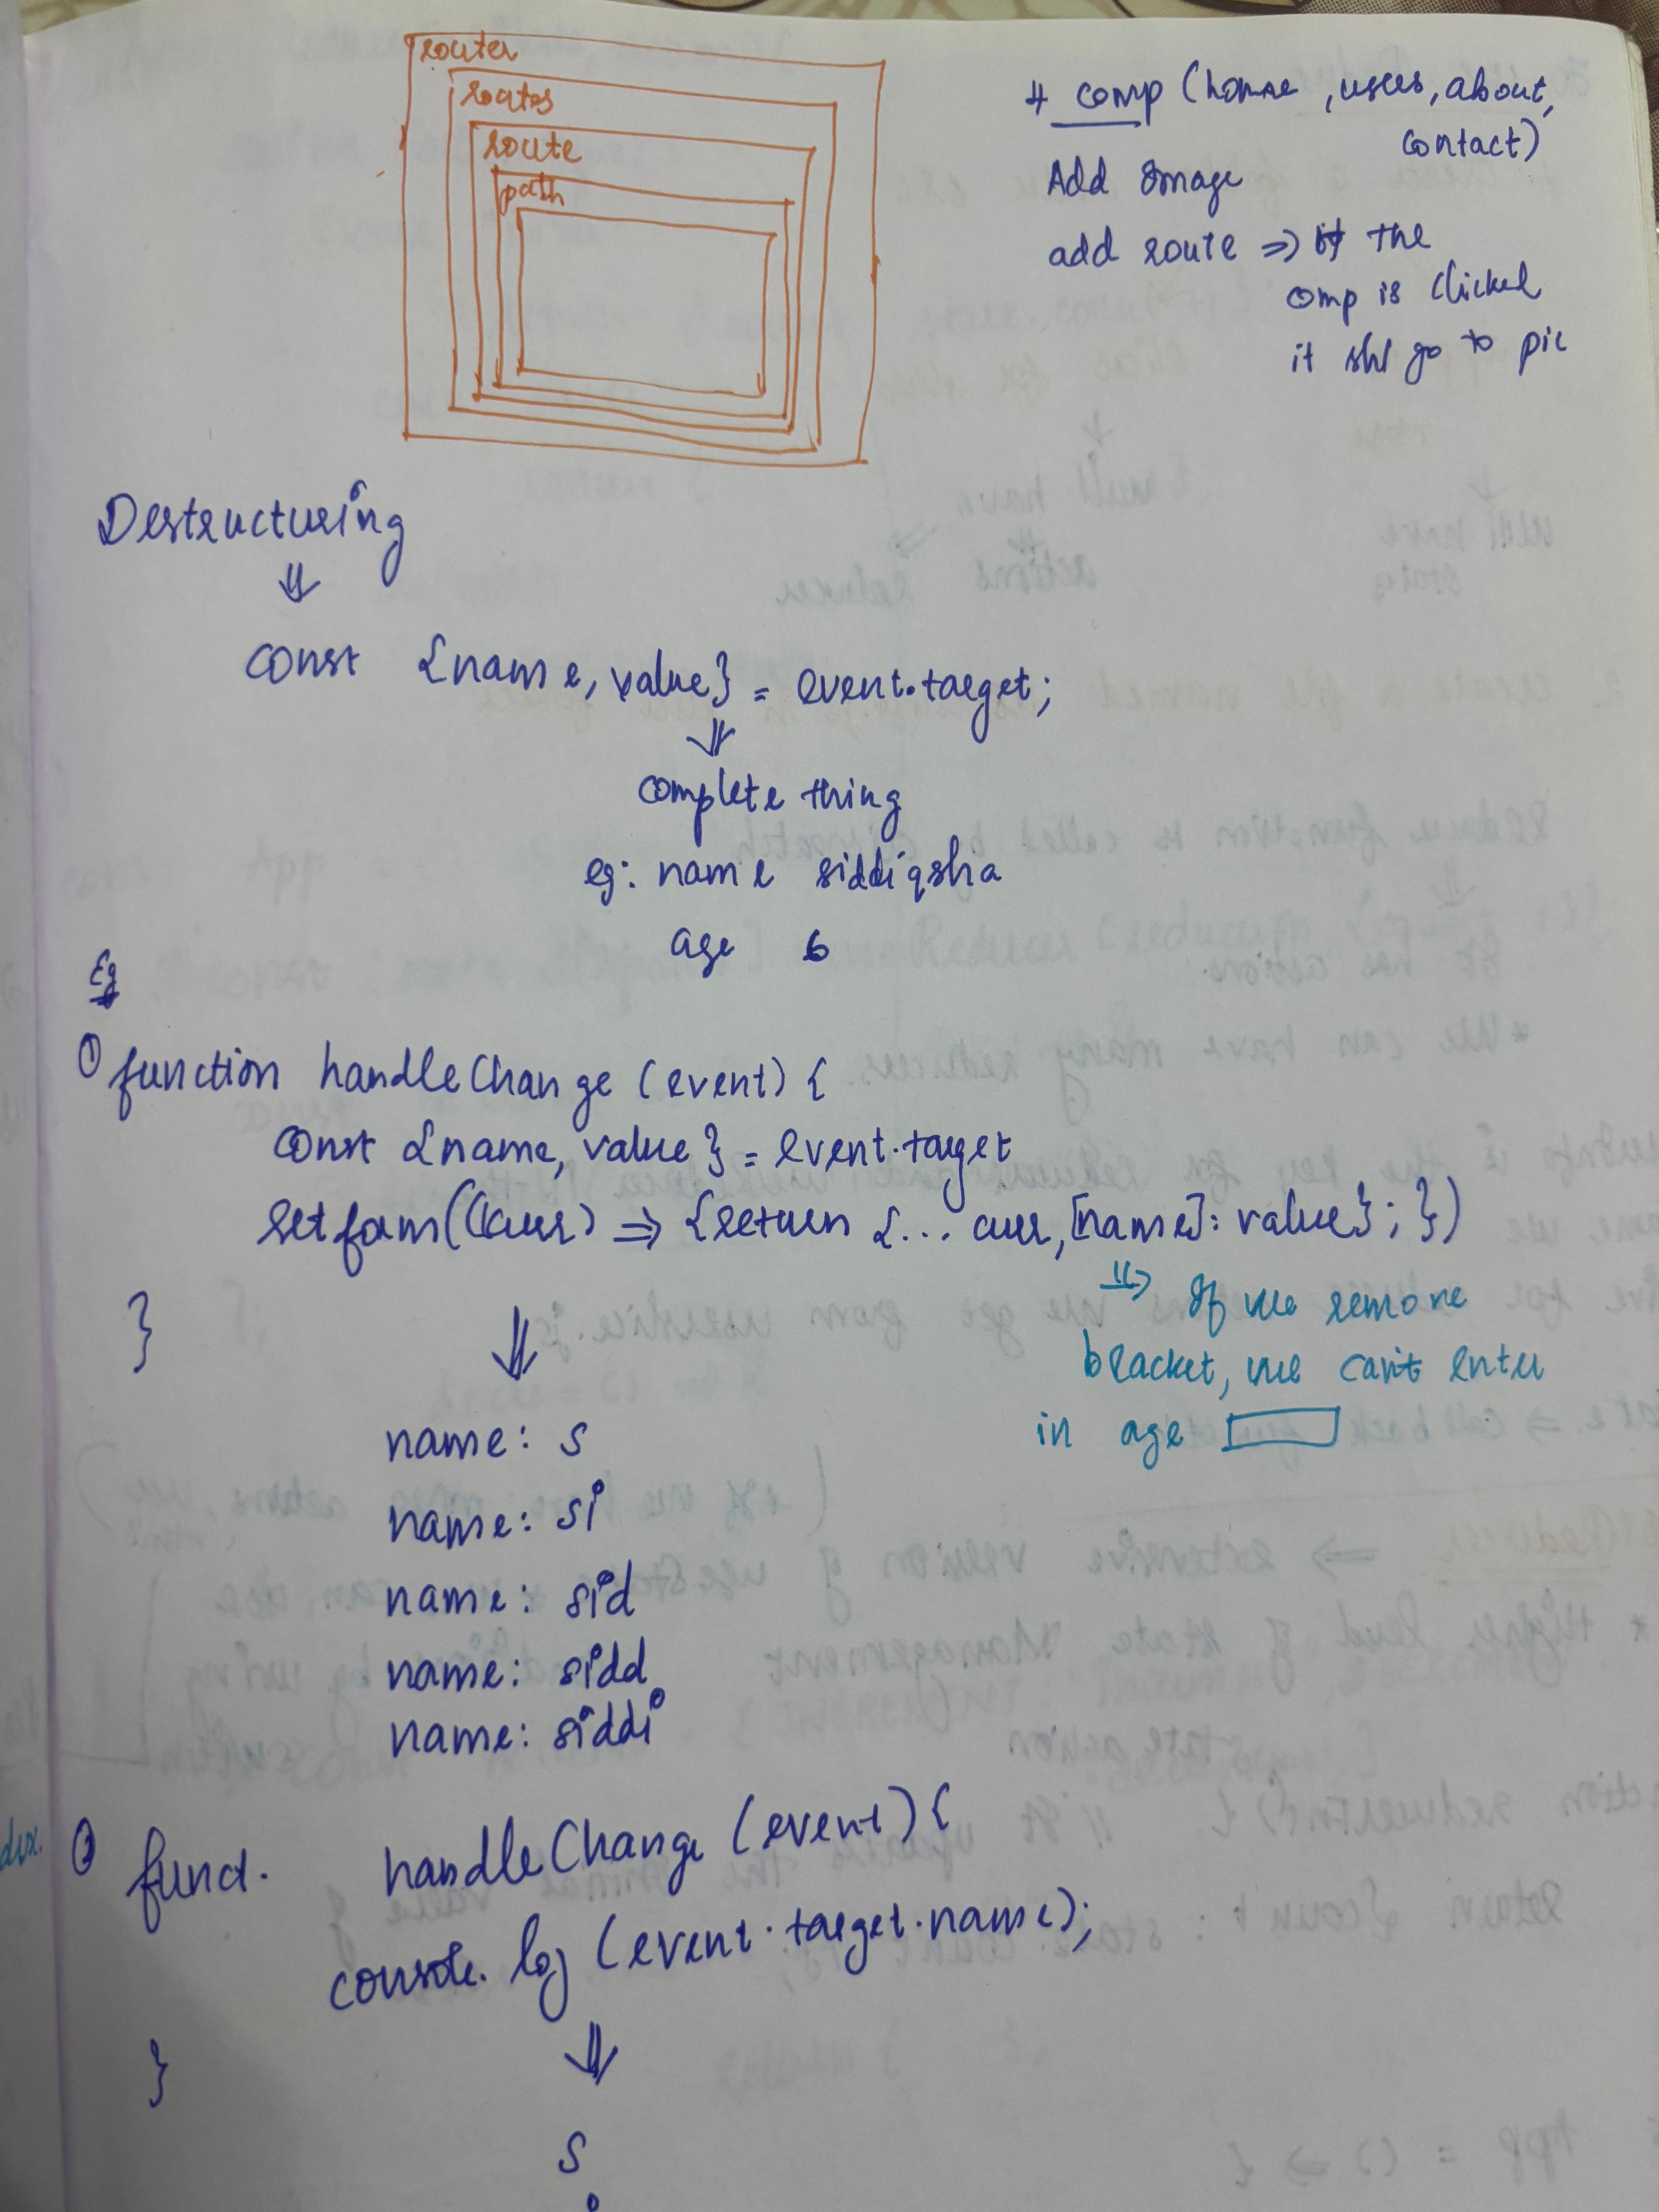 router
routes
route
path
# comp (home, users, about,
contact)
Add Image
add route => if the
omp is clicked
it shl go to pic
Destructuring
⇓
const {name, value} = event.target;
⇓
complete thing
eg: name siddiqsha
age 6
Eg
① function handleChange (event) {
const {name, value} = event.target
setform((curr) => {return {... curr, [name]: value}; })
}
⇓
=> If we remove
bracket, we can't enter
in age
name: s
name: si
name: sid
name: sidd
name: siddi
② funct. handleChange (event) {
console.log (event.target.name);
}
⇓
s
i